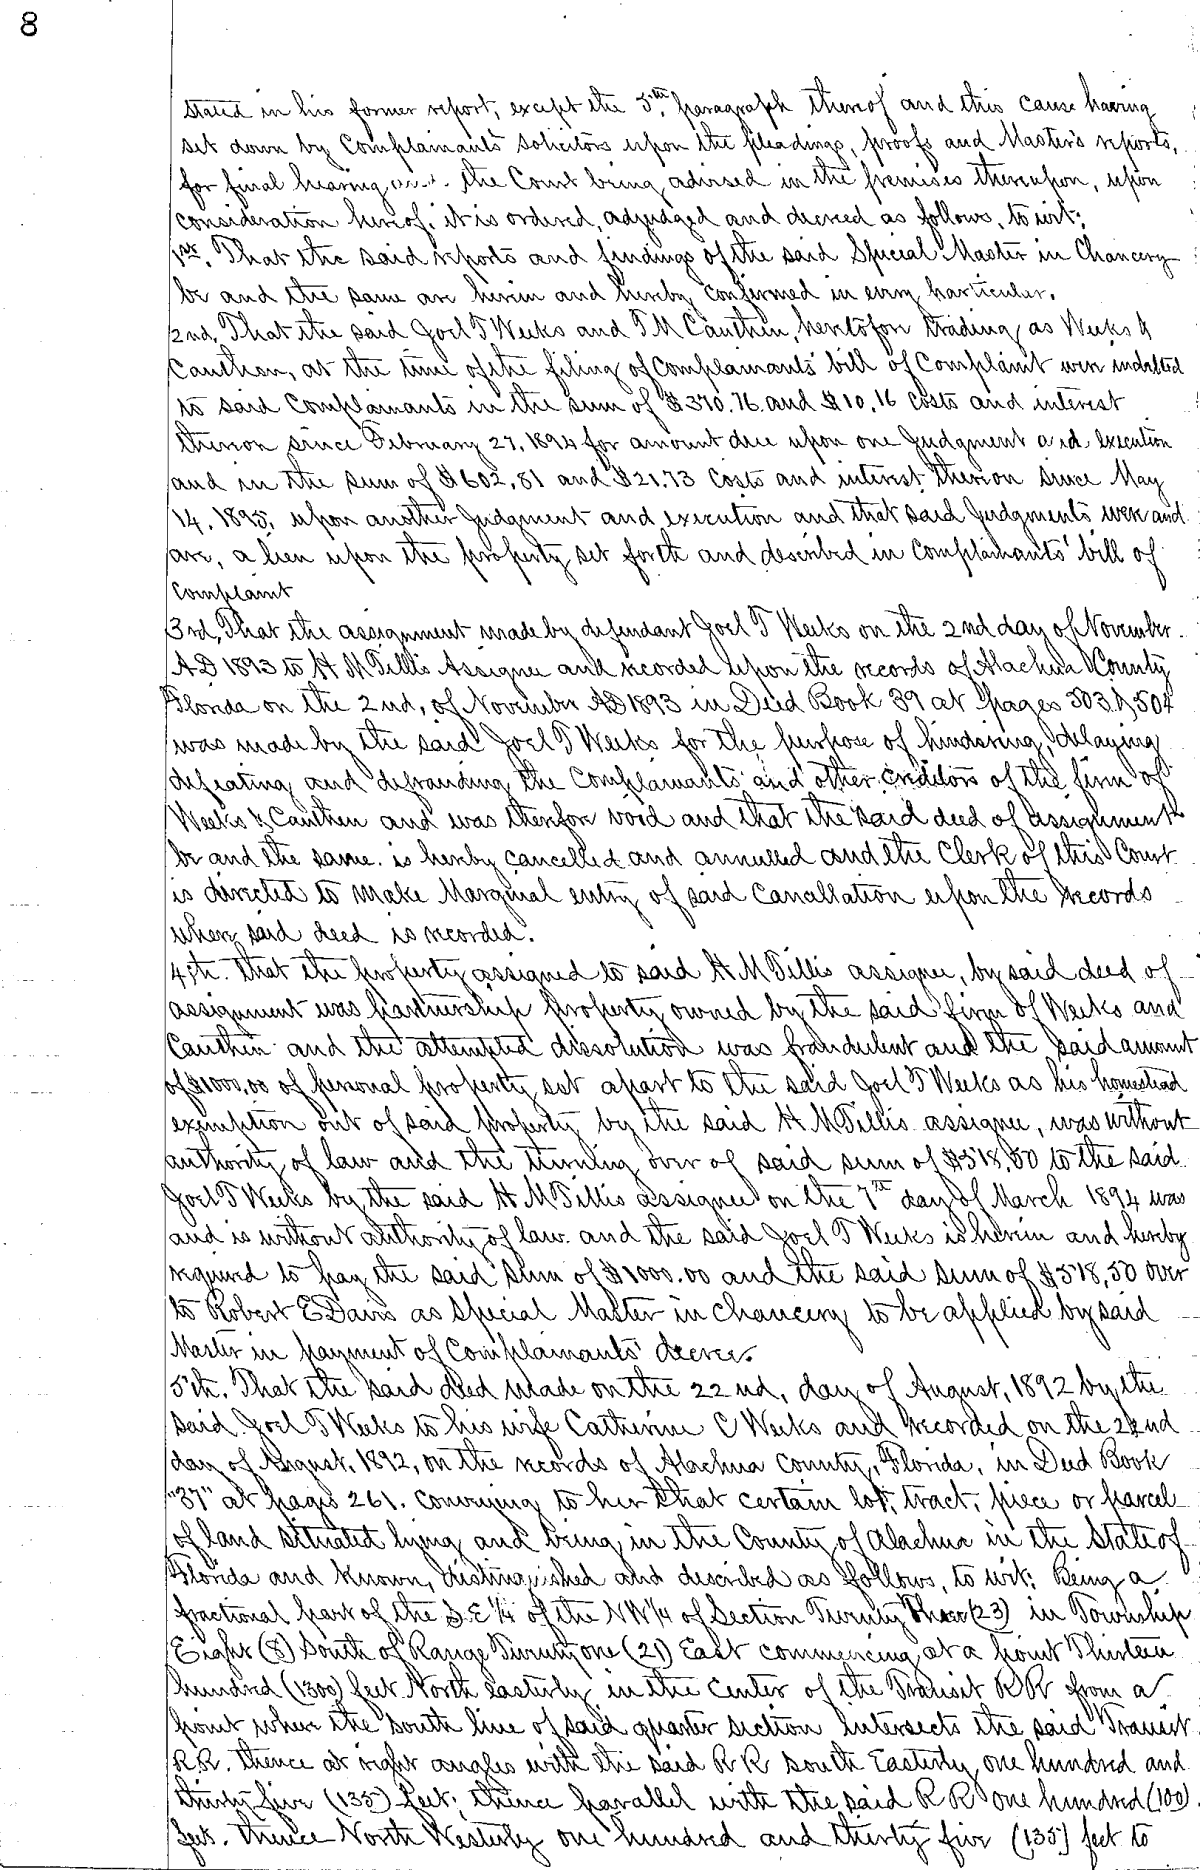 8
stated in his former report, except the 5th, paragraph thereof and this cause having
set down by Complainants' Solicitors upon the pleadings, proofs and Master's reports,
for final hearing, the Court being advised in the premises thereupon, upon
consideration hereof; it is ordered, adjudged and decreed as follows, to wit;
1st. That the said reports and findings of the said Special Master in Chancery
be and the same are herein and hereby confirmed in every particular.
2nd, That the said Joel T Weeks and T M Cauthen, heretofore trading as Weeks &
Cauthen, at the time of the filing of Complainants' bill of Complaint were indebted
to said Complainants in the sum of $370.76. and $10.16 costs and interest
thereon since February 27, 1894 for amount due upon one Judgment and execution
and in the sum of $602.81 and $21.73 costs and interest thereon since May
14, 1895, upon another Judgment and execution and that said Judgments were and
are, a lien upon the property set forth and described in Complainants' bill of
Complaint
3rd, That the assignment made by defendant Joel T Weeks on the 2nd day of November
AD 1893 to H M Tillis Assignee and recorded upon the records of Alachua County
Florida on the 2nd, of November AD 1893 in Deed Book 39 at pages 503 & 504
was made by the said Joel T Weeks for the purpose of hindering, delaying
defeating and defrauding the Complainants and other creditors of the firm of
Weeks & Cauthen and was therefore void and that the said deed of assignment
be and the same. is hereby cancelled and annulled and the Clerk of this Court
is directed to make Marginal entry of said Cancellation upon the records
where said deed is recorded.
4th. That the property assigned to said H M Tillis assignee, by said deed of
assignment was partnership property owned by the said firm of Weeks and
Cauthen and the attempted dissolution was fraudulent and the said amount
of $1000.00 of personal property set apart to the said Joel T Weeks as his homestead
exemption out of said property by the said H M Tillis assignee, was without
authority of law and the turning over of said sum of $518.50 to the said
Joel T Weeks by the said H M Tillis assignee on the 7th day of March 1894 was
and is without authority of law and the said Joel T Weeks is herein and hereby
required to pay the said sum of $1000.00 and the said sum of $518,50 over
to Robert E Davis as Special Master in Chancery to be applied by said
Master in payment of Complainants' decree.
5th. That the said deed made on the 22nd, day of August, 1892 by the
said Joel T Weeks to his wife Catherine C Weeks and recorded on the 22nd
day of August, 1892, on the records of Alachua County, Florida, in Deed Book
"37" at pages 261. conveying to her that certain lot, tract, piece or parcel
of land situated lying and being in the County of Alachua in the State of
Florida and known, distinguished and described as follows, to wit: Being a
fractional part of the S.E ¼ of the NW¼ of Section Twenty Three (23) in Township
Eight (8) South of Range Twenty one (21) East commencing at a point Thirteen
hundred (1300) feet North Easterly in the center of the Transit R R from a
point where the south line of said quarter section intersects the said Transit
R.R. thence at right angles with the said R R south Easterly one hundred and
thirty five (135) feet; thence parallel with the said R R one hundred (100)
feet. thence North Westerly one hundred and thirty five (135) feet to